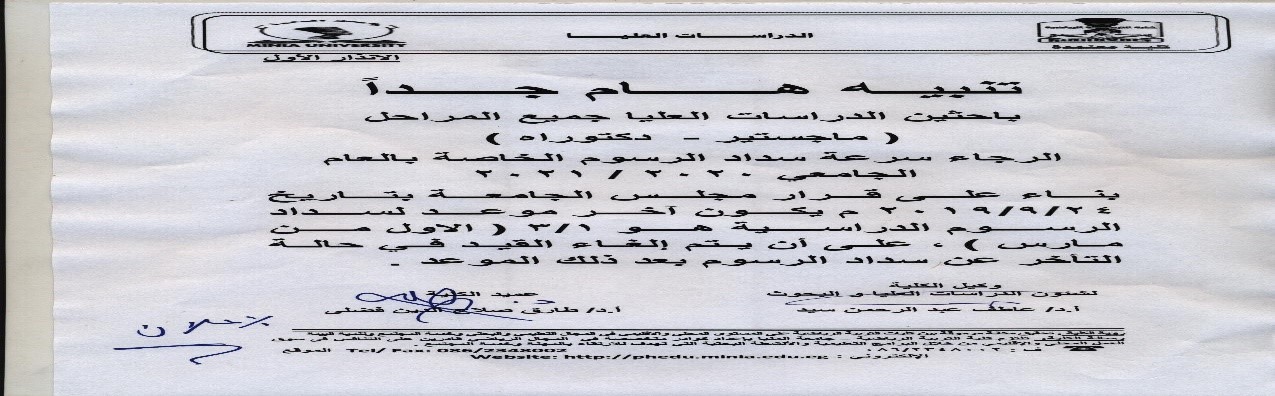 الدراسات العليا
MINIA UNIVERSITY
كلية معتمدة
الانذار الأول
تنبيه هام جداً
باحثين الدراسات العليا جميع المراحل
( ماجستير - دكتوراه )
الرجاء سرعة سداد الرسوم الخاصة بالعام
الجامعي ٢٠٢٠ / ٢٠٢١
بناء على قرار مجلس الجامعة بتاريخ
٢٠١٩/٩/٢٤ م يكون آخر موعد لسداد
الرسوم الدراسية هو ٣/١ ( الاول من
مارس ) ، على أن يتم إلغاء القيد في حالة
التأخر عن سداد الرسوم بعد ذلك الموعد .
وكيل الكلية
لشئون الدراسات العليا و البحوث
أ.د/ عاطف عبد الرحمن سيد
عميد الكلية
أ.د/ طارق صلاح الدين فضلى
للاعلان
Tel/ Fax: 086/2348002 الموقع
الإلكتروني : Website: http://phedu.minia.edu.eg